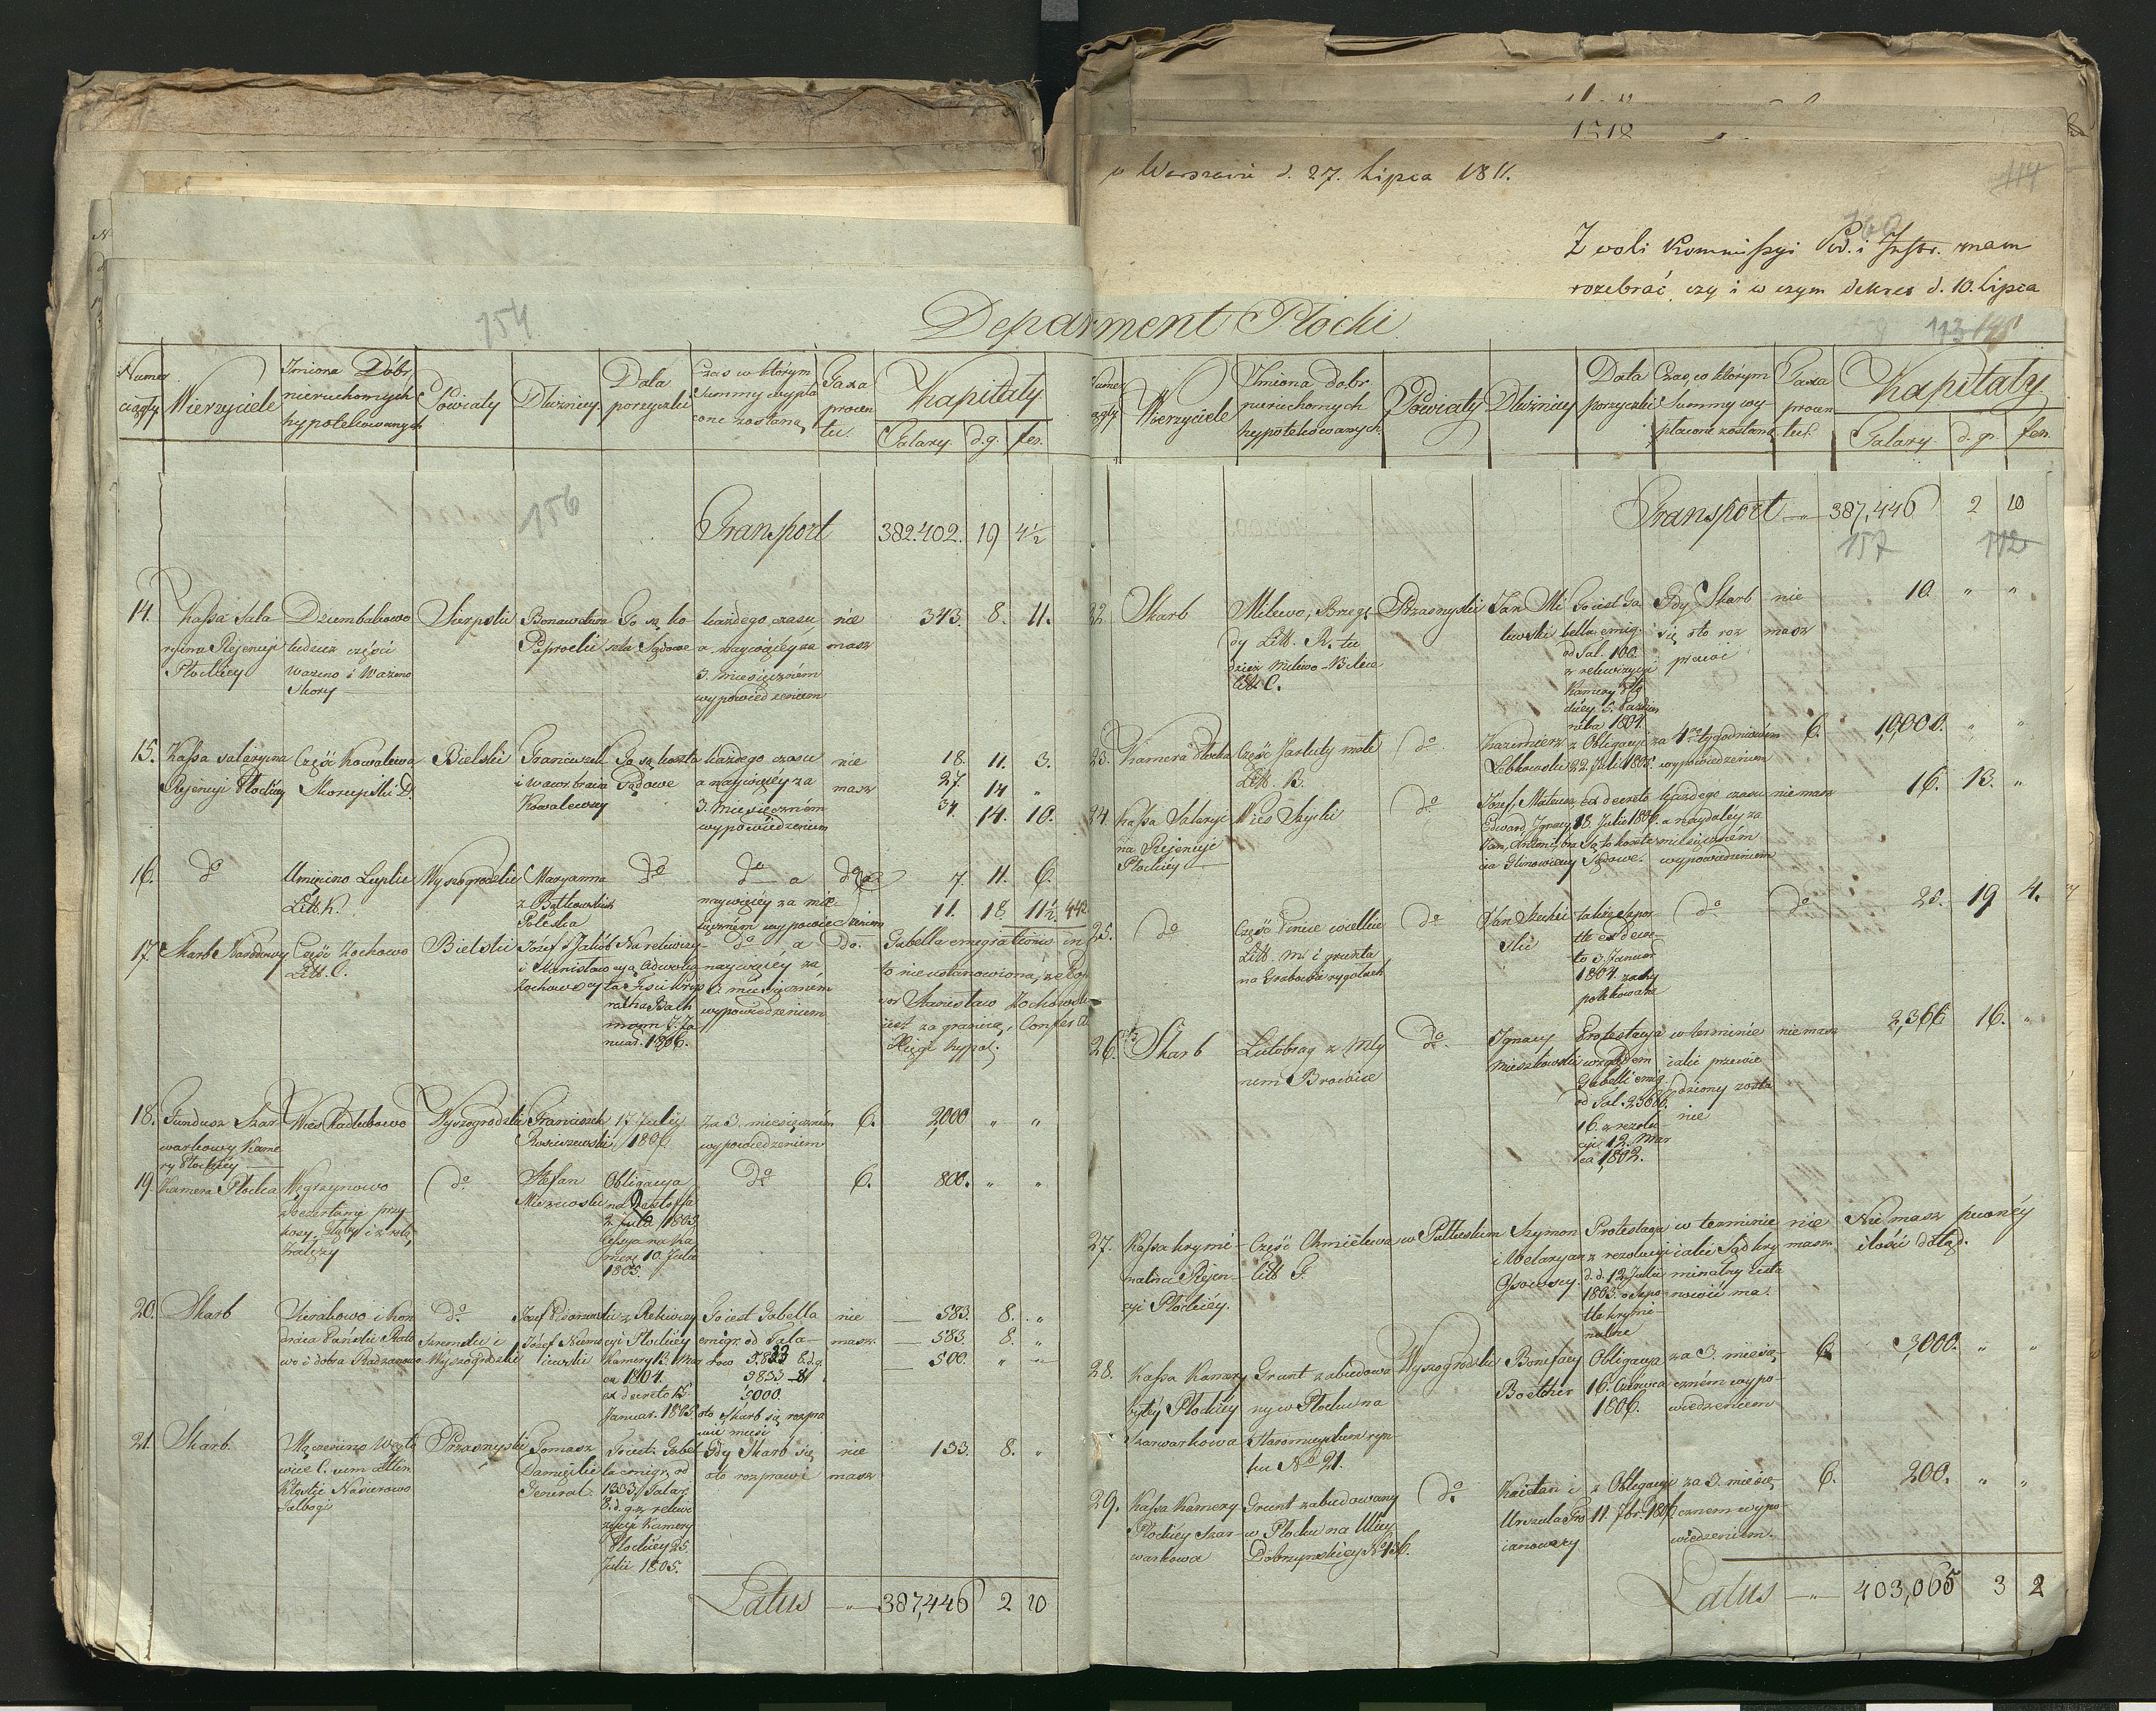 1518
w Warszawie d. 27. Lipca 1811.
114
160
Z woli Kommissyi Pod. i Instr. mam
rozebrać, czy i w czym dekret d. 10. Lipca
154
Department Płocki
113
Numer ciągły
Wierzyciele
Imiona Dóbr nieruchomych hypotekowanych
Powiaty
Dłużnicy
Data porzyczki
Czas w którym Summy wypłacone zostaną
Taxa procentu
Kapitały
Talary. d.g. fen.
156
Transport 382.402. 19 4½
14. Kassa Salaryina Rejencyi Płockiey
Dziembakowo tudzież części Ważeno i Ważeno Skory
Sierpski
Bonawentura Paprocki
To są koszta Sądowe
każdego czasu a naywięcey za 3. miesięcznem wypowiedzeniem
nie masz
343. 8. 11.
15. Kassa salaryina Rejencyi Płockiey
Część Kowalewa Skorupki D.
Bielski
Franciszek i Wawr. bracia Kowalewscy
To są koszta Sądowe
każdego czasu a naywięcey za 3. miesięcznem wypowiedzeniem
nie masz
18. 11. 3.
27. 14 „
34. 14. 10.
16. do
Umięcino Łupkie Litt. K.
Wyszogrodzki
Maryanna z Bątkowskich Poleska
do
do a naywięcey za miesięcznem wypowiedzeniem
do
7. 11. 6.
11. 18. 11½. 442
17. Skarb Narodowy
Część Żochowo Litt. C.
Bielski
Józef i Jakób i Stanisław Żochowscy
Na rekwizycyą Adwokata Fisci Kryp ratha Bachmann 7. Januar. 1806.
do a naywięcey za 6. miesięcznem wypowiedzeniem
do.
Gabella emigrationis in to nieustanowiona, że Stanisław Żochowski iest za granicą, Confer. Księgi hypot.
18. Fundusz Szarwarkowy Kamery Płockiey
Wieś Kadłubowo
Wyszogrodzki
Franciszek Rościszewski
17 July 1806
za 3. miesięcznem wypowiedzeniem
6. 2000 „ „
19. Kamera Płocka
Węgrzynowo
do
Stefan Miszewski
Obligacya 2. Julii 1805. Cessya na Kamerę 10. Julii 1805.
do
6. 800. „ „
20. Skarb
Kondraca Pański i dobra Radzanowo
do
Sremski i Wyszogrodzki
z Rekwizycyi Płockiey Kamery 13. Marca 1804. ex decreto 15. Januar. 1805
To iest Gabella emigr. od Talarów 5.833 8. d.g. 5833 „8 5000. oto Skarb się rozprawić musi
nie masz
583. 8. „
583. 8. „
500. „ „
21. Skarb.
Przasnyski
Tomasz Damięcki General.
To iest Gabella emigr. od 1333. Talar. 8. d. g. z rekwizycyi Kamery Płockiey 25. Julii 1805.
Gdy Skarb się oto rozprawi
nie masz
133. 8. „
Latus „ 387,446 2 10
Numer ciągły
Wierzyciele
Imiona dobr. nieruchomych hypotekowanych
Powiaty
Dłużnicy
Data porzyczki
Czas, w którym Summy wypłacone zostaną
Taxa procentu.
Kapitały.
Talary. d. gr. fen.
Transport „ 387,446 2 10
157
112
22. Skarb
Milewo, Brzegędy Litt. R. tudzież Milewo Bilica Litt. C.
Przasnyski
Jan Milewski
To iest Gabella emig. od Tal. 100. z rekwizycyi Kamery Płockiey 5. Październ. 1804.
Gdy Skarb się oto rozprawi
nie masz
10. „ „
23. Kamera Płocka
Część Jarluty małe Litt. B.
do.
Kazimierz Łebkowski
z Obligacyi 22. Julii 1805.
za 4ro tygodniowem wypowiedzeniem
6. 10,000. „ „
24. Kassa Salaryina Rejencyi Płockiey
Wieś Szyski
do
Józef, Mateusz, Edward, Ignacy, Jan, Antoni, bracia Glinowieccy
ex decreto 18. Julii 1806. Są to koszta Sądowe.
każdego czasu a naydaléy za miesięcznem wypowiedzeniem
nie masz
16. 13. „
25. do
Część Pinice wielkie Litt. M. i grunta na Grabowie rygotach
do
Jan Szucki
także Szportle ex decreto 3. Januar 1804. zahypotekowane
do
do
20. 19 4.
26. Skarb
Lutobrag z Młynem Browice
do.
Ignacy Mieszkowski
Protestacya względem Gabelli emig. od Tal. 23666. 16. z rezolucyi 12. Marca 1802.
w terminie iakie przewiedziony zostanie
nie masz
2,366 16. „
27. Kassa kryminalna Rejencyi Płockiey.
Część Chmielewa Litt G.
w Pułtuskim
Szymon i Waleryan Gsowscy.
Protestacya z rezolucyi d. d. 12. Julii 1803. o Szportle kryminalne
w terminie iakie Sąd kryminalny ustanowić ma.
nie masz
Nie masz pewnéy ilości dotąd.
28. Kassa Kamery byłéy Płockiéy Szarwarkowa
Grunt zabudowany w Płocku na Staromieyskim rynku No 21.
Wyszogrodzki
Bonifacy Boether
Obligacya 16. Czerwca 1806.
za 3. miesięcznem wypowiedzeniem
6. 3,000. „ „
29. Kassa Kamery Płockiéy Szarwarkowa
Grunt zabudowany w Płocku na Ulicy Dobrzyńskiey No 156.
do.
Kaietan i Urszula
z Obligacyi 11. 7br. 1806
za 3. miesięcznem wypowiedzeniem.
6. 200. „ „
Latus „ 403,065 3 2